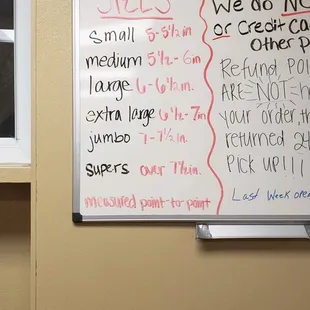 SIZES
small 5-5½in
medium 5½-6in
large 6-6½in.
extra large 6½-7in
jumbo 7-7½in.
supers over 7½in.
measured point-to-point
We do NO
or Credit Ca
Other p
Refund
ARE NOT
your order, th
returned 24
Pick up!!!
Last Week open